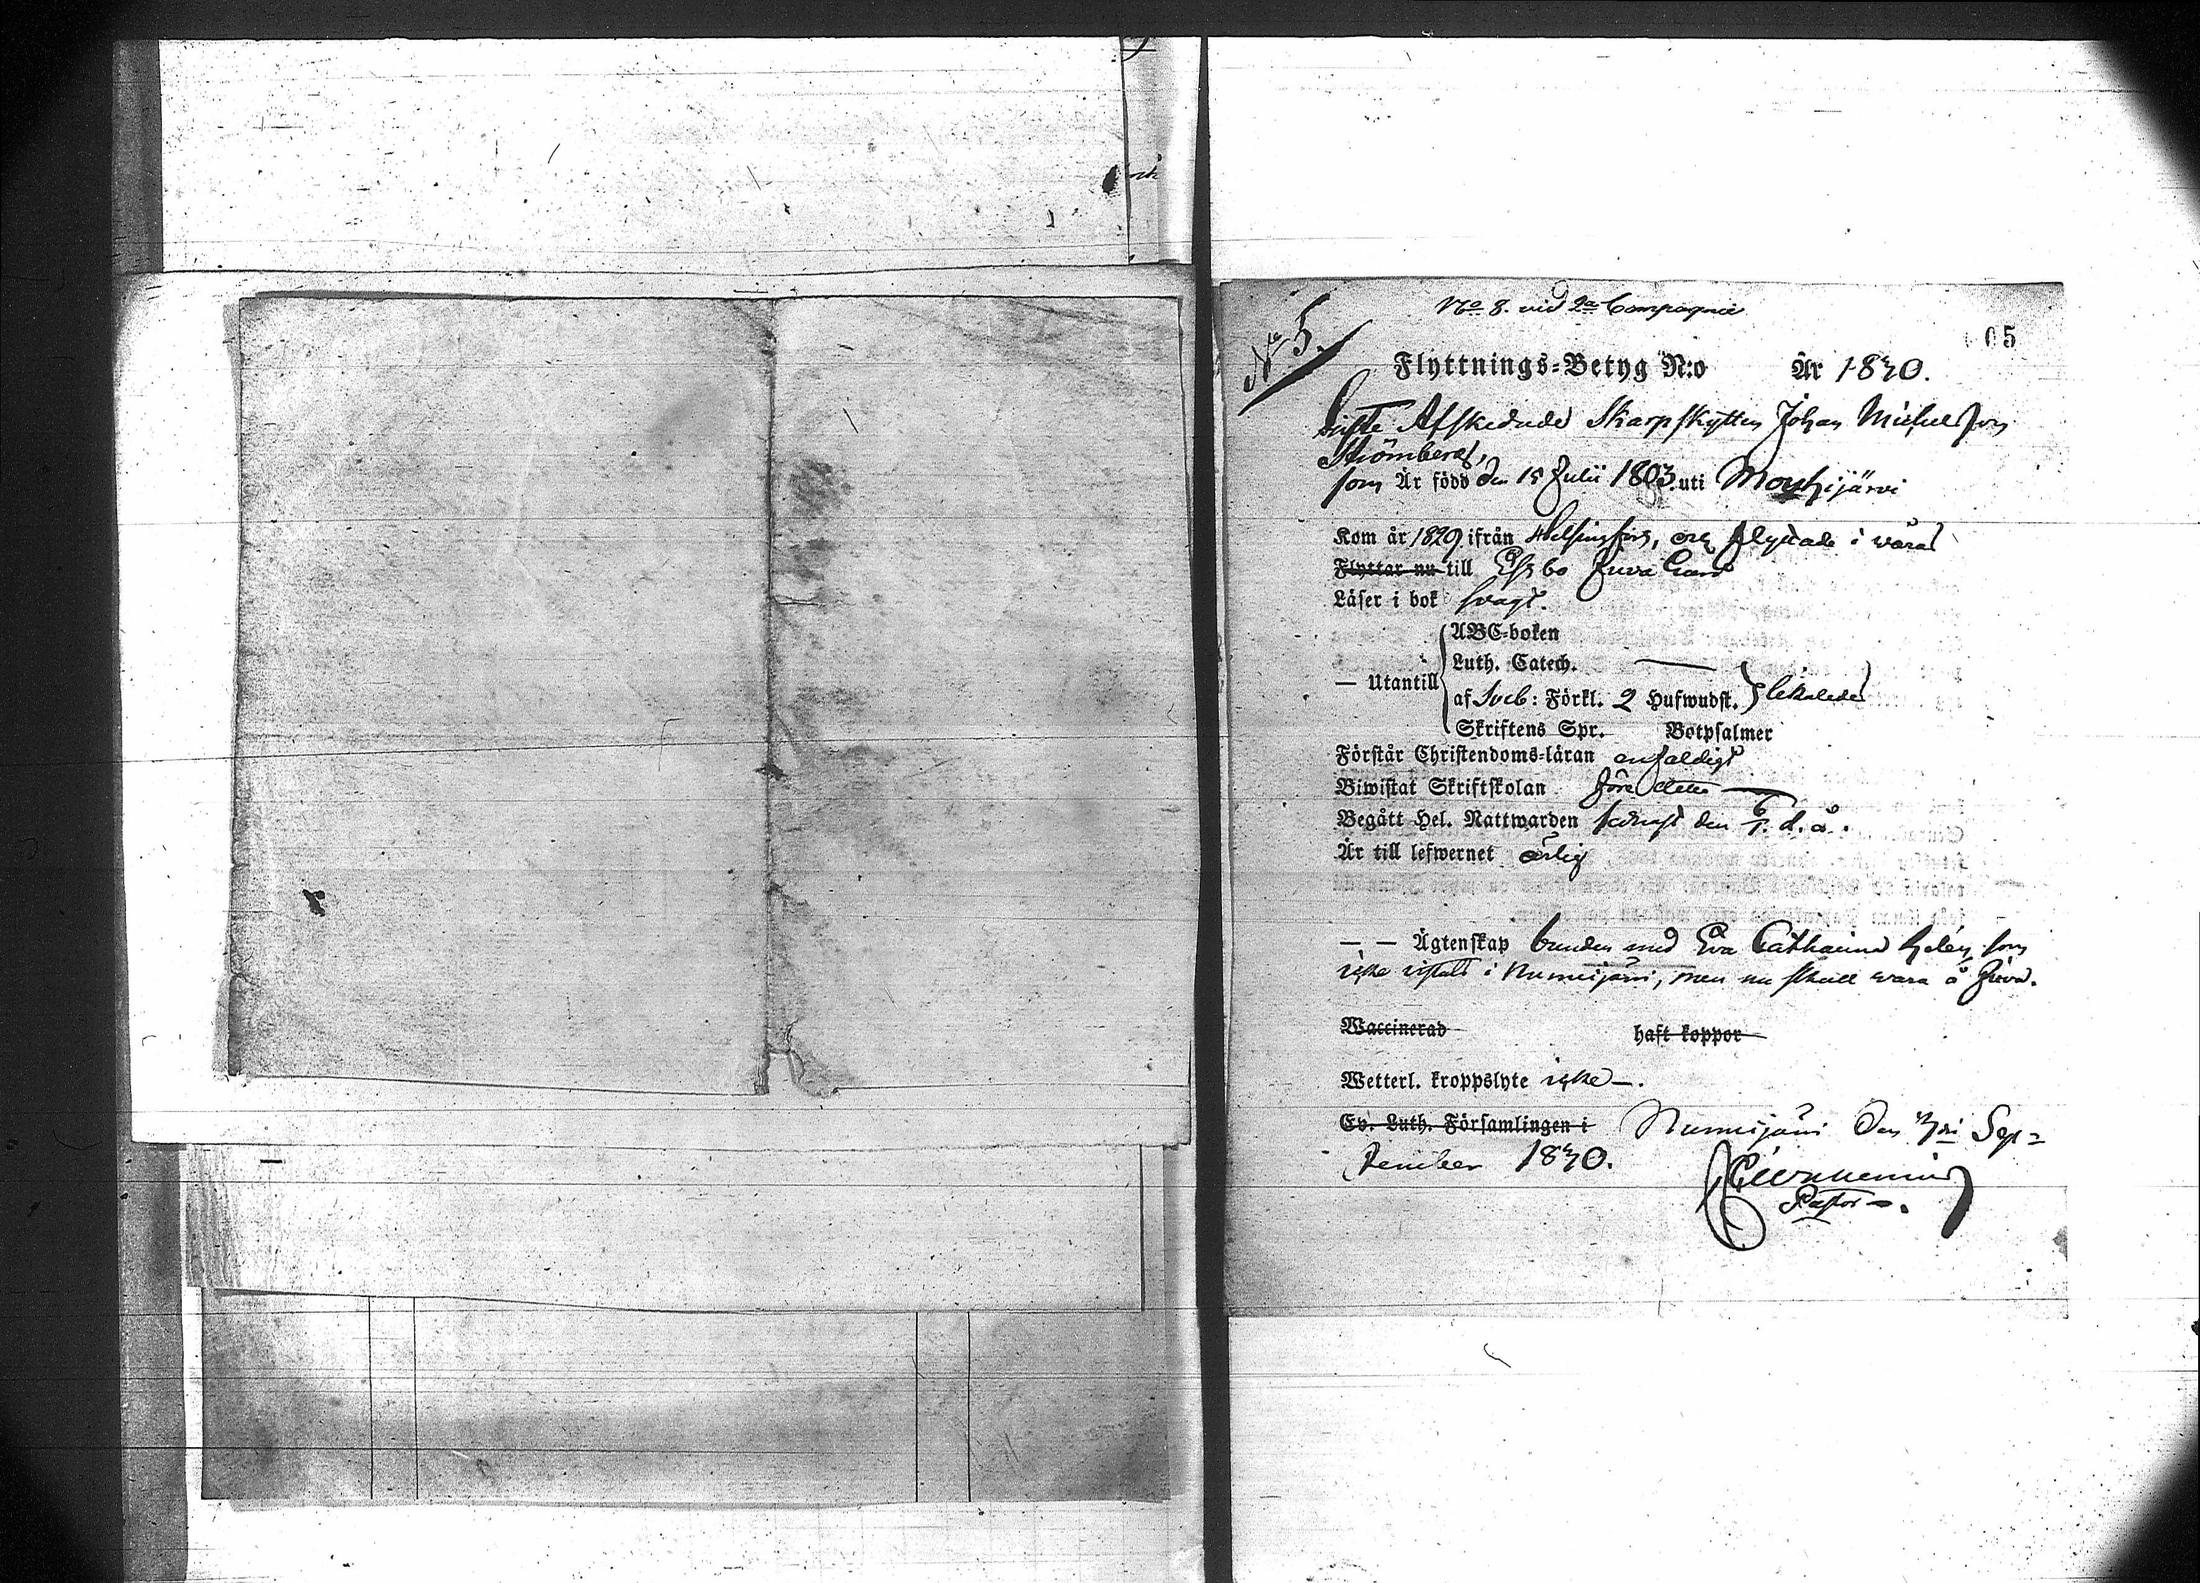 No 8. vid 2a Compagnie
No 5.
05
Flyttnings-Betyg N:o År 1830.
Gifte Afskedade Skarpskytten Johan Michelsson
Strömberg,
som Är född den 15 Julii 1803. uti Mouhijärvi
Kom år 1829 ifrån Helsingfors, och flyttade i våras
Flyttar nu till Esbo Juva Gård
Läser i bok svagt.
ABC-boken
Luth. Catech. —
— Utantill
af Sveb: Förkl. 2 Hufwudst. likaledes
Skriftens Spr. Botpsalmer
Förstår Christendoms-läran enfaldigt
Biwistat Skriftskolan före detta —
Begått Hel. Nattwarden sednast den d. å.
Är till lefwernet ärlig
— — Ägtenskap bunden med Eva Catharina som
icke vistats i Nummijärvi, men nu skall vara å Juva.
Waccinerad haft koppor
Wetterl. kroppslyte icke —.
Ev. Luth. Församlingen i Nummijärvi den Sep=
tember 1830.
Pastor.